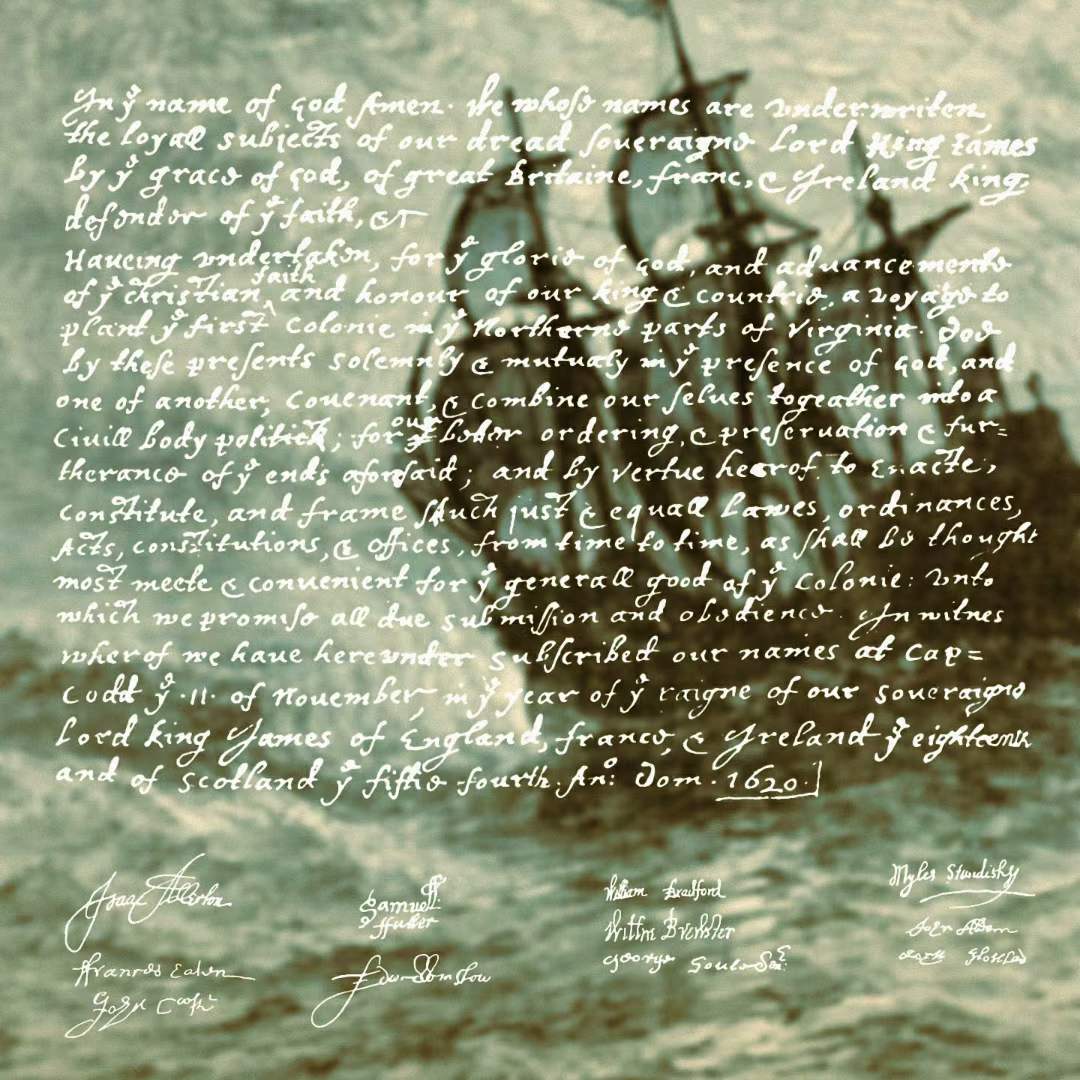 In yᵉ name of god Amen. We whose names are vnderwriten,
the loyall subjects of our dread soueraigne Lord King Iames
by yᵉ grace of god, of great Britaine, franc, & Ireland king,
defender of yᵉ faith, &c
Haueing vndertaken, for yᵉ glorie of god, and aduancemente
of yᵉ christian ^faith and honour of our king & countrie, a voyage to
plant yᵉ first colonie in yᵉ Northerne parts of Virginia. Doe
by these presents solemnly & mutualy in yᵉ presence of god, and
one of another, couenant, & combine our selues togeather into a
ciuill body politick; for our better ordering, & preseruation & fur=
therance of yᵉ ends aforesaid; and by vertue hearof to Enacte,
constitute, and frame such just & equall lawes, ordinances,
Acts, constitutions, & offices, from time to time, as shall be thought
most meete & conuenient for yᵉ generall good of yᵉ Colonie: vnto
which we promise all due submission and obedience. In witnes
wherof we haue herevnder subscribed our names at Cap=
Codd yᵉ .11. of Nouember, in yᵉ year of yᵉ raigne of our soueraigne
Lord king James of England, france, & Ireland yᵉ eighteenth
and of Scotland yᵉ fiftie fourth. Anᵒ: Dom. 1620.
Isaac Allerton
Samuell ffuller
William Bradford
Myles Standish
Willm Brewster
George Soule
John Alden
ffrancis Eaton
Edw Winslow
John Cooke